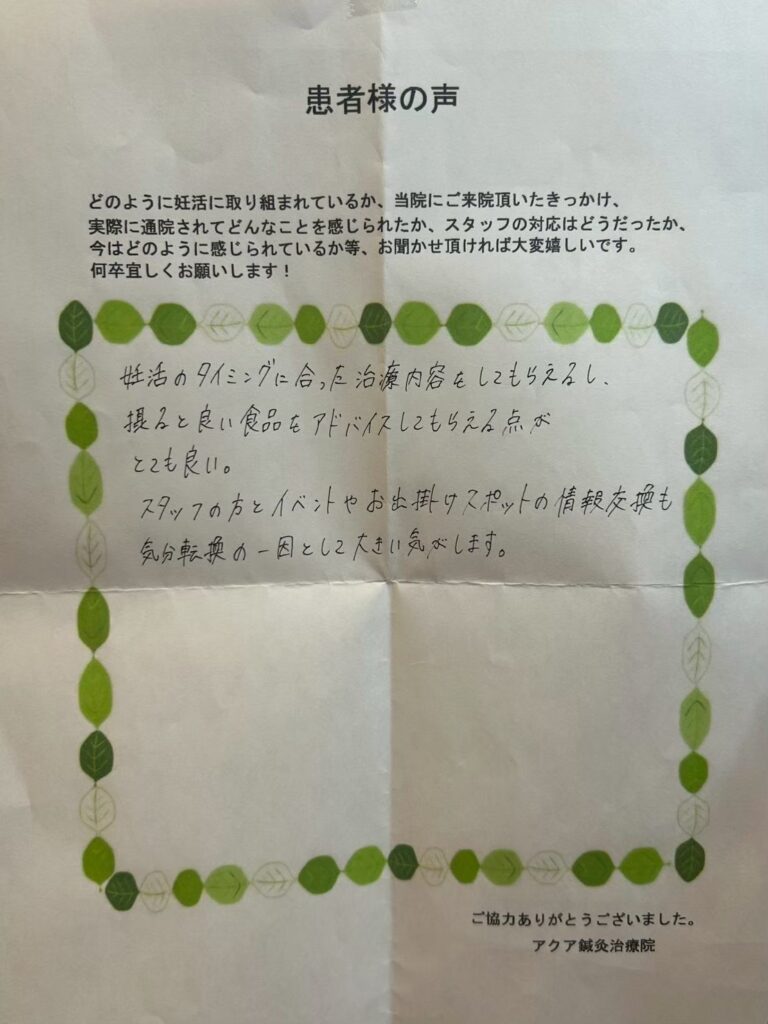 患者様の声
どのように妊活に取り組まれているか、当院にご来院頂いたきっかけ、
実際に通院されてどんなことを感じられたか、スタッフの対応はどうだったか、
今はどのように感じられているか等、お聞かせ頂ければ大変嬉しいです。
何卒宜しくお願いします！
妊活のタイミングに合った治療内容をしてもらえるし、
摂ると良い食品をアドバイスしてもらえる点が
とても良い。
スタッフの方とイベントやお出掛けスポットの情報交換も
気分転換の一因として大きい気がします。
ご協力ありがとうございました。
アクア鍼灸治療院